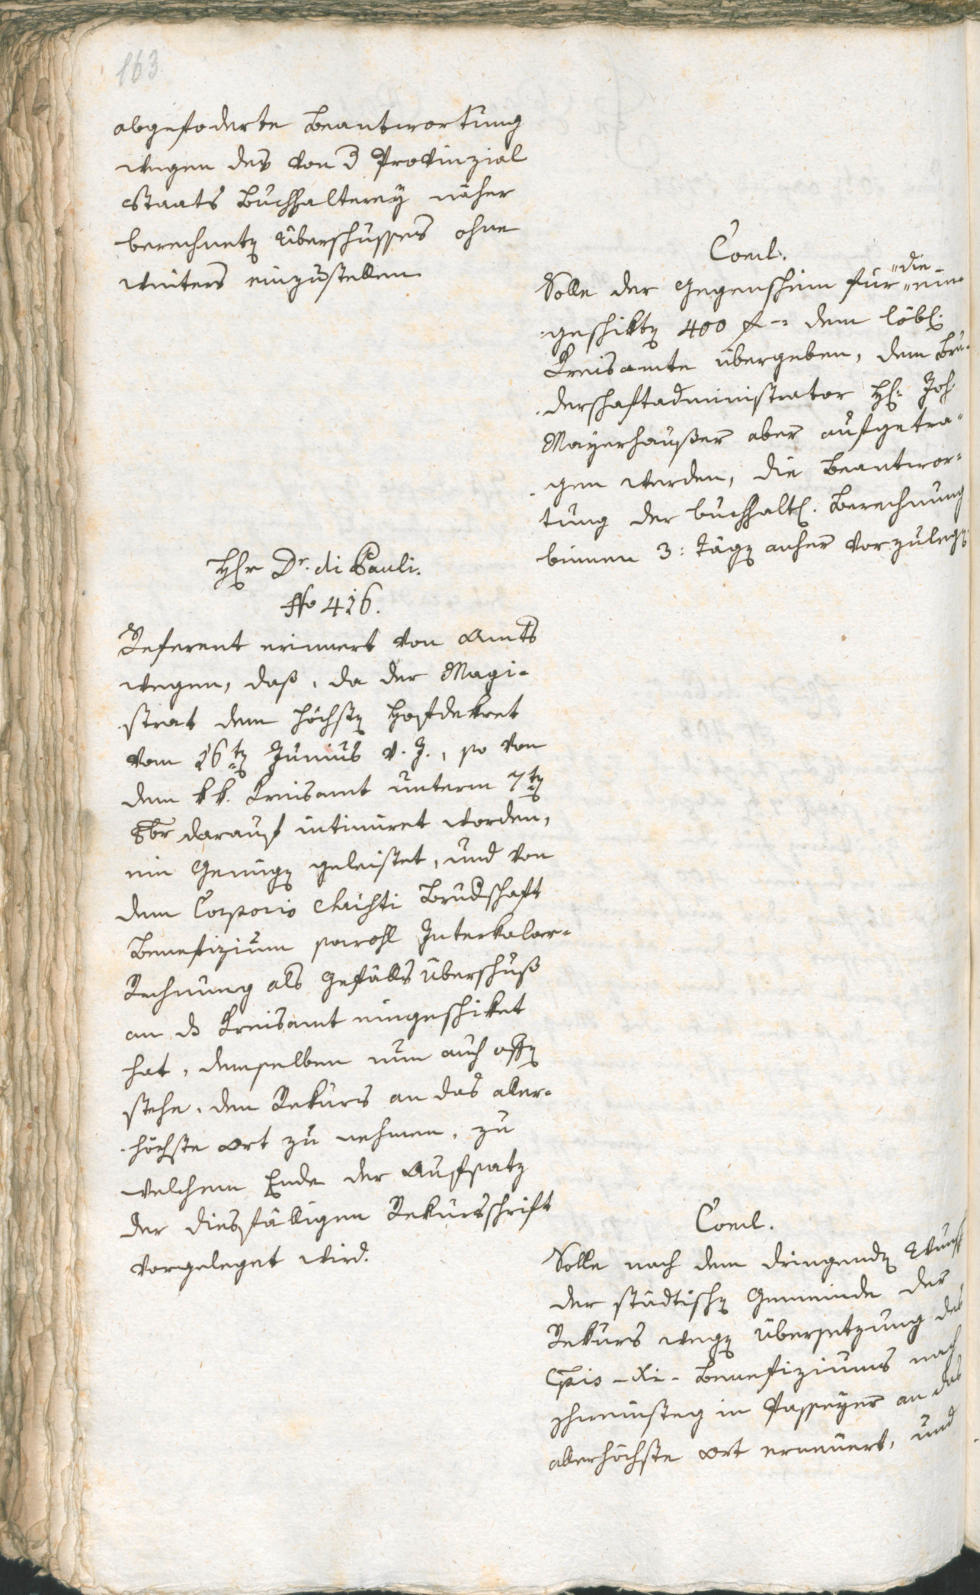 163
abgefoderte Beantwortung
wegen des von d Provinzial
Staats Buchhalterey näher
berechnetē Überschusses ohne
weiters einzustellen.
Concl.
Solle der Gegenschein für die
eingeschiktē 400 f dem löbl:
Kreisamte übergeben, dem Bru-
derschaftadministrator H: Joh
Mayerhauser aber aufgetra-
gen werden, die Beantwor-
tung der buchhaltl. Berechnung
binnen 3: Tägē anher vorzulegē
Hr Dr. di Pauli.
No 416.
Referent erinnert von Amts
wegen, daß, da der Magi-
strat dem höchstē Hofdekret
vom 16tē Junius v. J., so von
dem kk. Kreisamt unterm 7tē
8br darauf intimiret worden,
ein Genügē geleistet, und von
dem Corporis Christi Brudschaft
Benefizium sowohl Interkalar-
Rechnung als Gefälls Überschuß
an ds Kreisamt eingeschiket
hat, demselben nun auch offē
stehe, den Rekurs an das aller-
höchste Ort zu nehmen, zu
welchem Ende der Aufsatz
der diesfälligen Rekursschrift
vorgeleget wird.
Concl.
Solle nach dem dringendē Wunsch
der städtischē Gemeinde der
Rekurs wegē Übersetzung des
Cpis-Xi-Benefiziums nach
in Passeyer an das
allerhöchste Ort erneuert, und